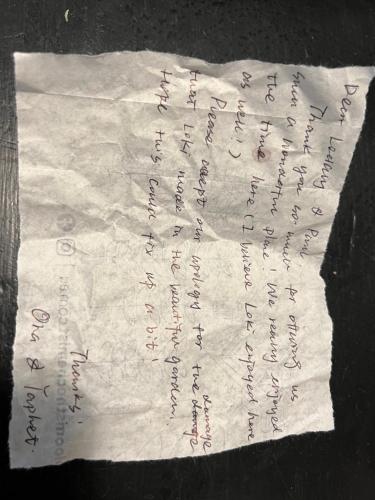 Dear Lesley & Paul
Thank you so much for offering us
such a wonderful place! We really enjoyed
the time here (I believe Loki enjoyed here
as well!)
Please accept our apology for the damage
that Loki made in the beautiful garden.
Hope this could fix up a bit!
Thanks!
& Japhet.